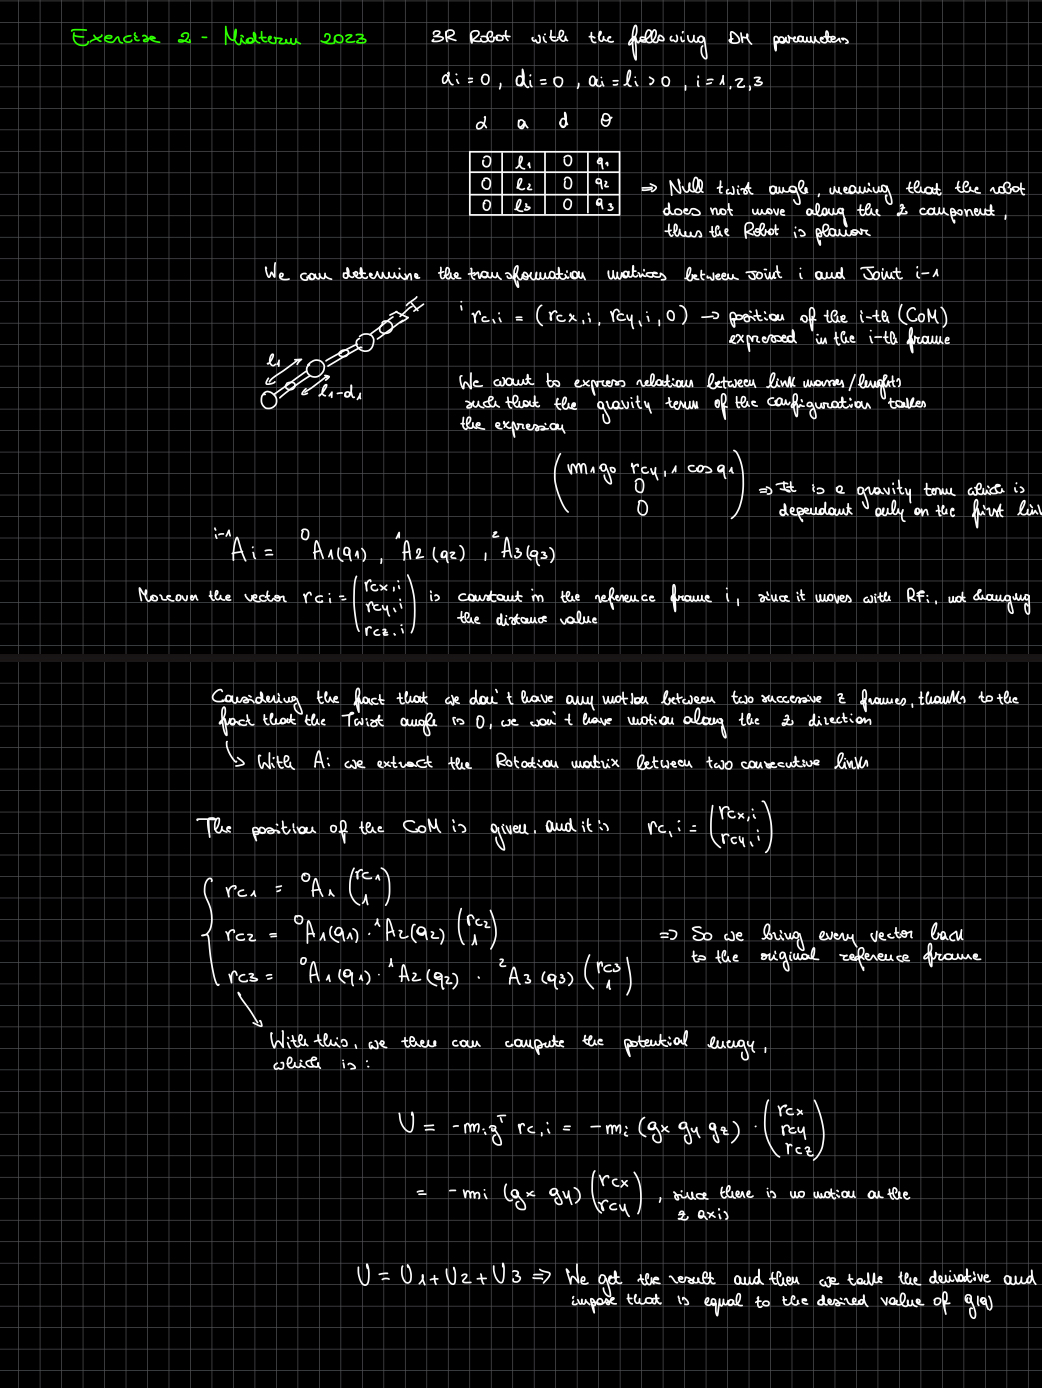 Exercise 2 - Midterm 2023
3R Robot with the following DH parameters
αi = 0 , di = 0 , ai = li > 0 , i = 1,2,3
α a d θ
0 l1 0 q1
0 l2 0 q2
0 l3 0 q3
⇒ Null twist angle, meaning that the robot
does not move along the z component,
thus the Robot is planar
We can determine the transformation matrices between Joint i and Joint i-1
i rc,i = (rcx,i, rcy,i, 0) → position of the i-th (CoM)
expressed in the i-th frame
l1
l1-d1
We want to express relation between link masses/lenghts
such that the gravity term of the configuration takes
the expression
(m1g0 rcy,1 cos q1
0
0)
⇒ It is a gravity term which is
dependant only on the first link
i-1Ai = 0A1(q1) , 1A2(q2) , 2A3(q3)
Moreover the vector rci = (rcx,i rcy,i rcz,i) is constant in the reference frame i, since it moves with RFi, not changing
the distance value
Considering the fact that we don't have any motion between two successive z frames, thanks to the
fact that the Twist angle is 0, we won't have motion along the z direction
↳ With Ai we extract the Rotation matrix between two consecutive links
The position of the CoM is given, and it is rc,i = (rcx,i rcy,i)
rc1 = 0A1 (rc1 1)
rc2 = 0A1(q1) · 1A2(q2) (rc2 1)
rc3 = 0A1(q1) · 1A2(q2) · 2A3(q3) (rc3 1)
⇒ So we bring every vector back
to the original reference frame
With this, we then can compute the potential energy,
which is :
U = -mi gT rc,i = -mi (gx gy gz) · (rcx rcy rcz)
= -mi (gx gy) (rcx rcy) , since there is no motion on the
z axis
U = U1 + U2 + U3 ⇒ We get the result and then we take the derivative and
impose that is equal to the desired value of g(q)